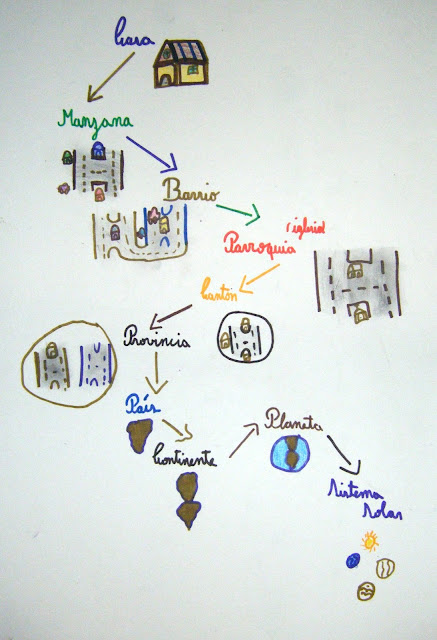 Casa
Manzana
Barrio
Parroquia (iglesia)
Cantón
Provincia
País
Continente
Planeta
Sistema
Solar